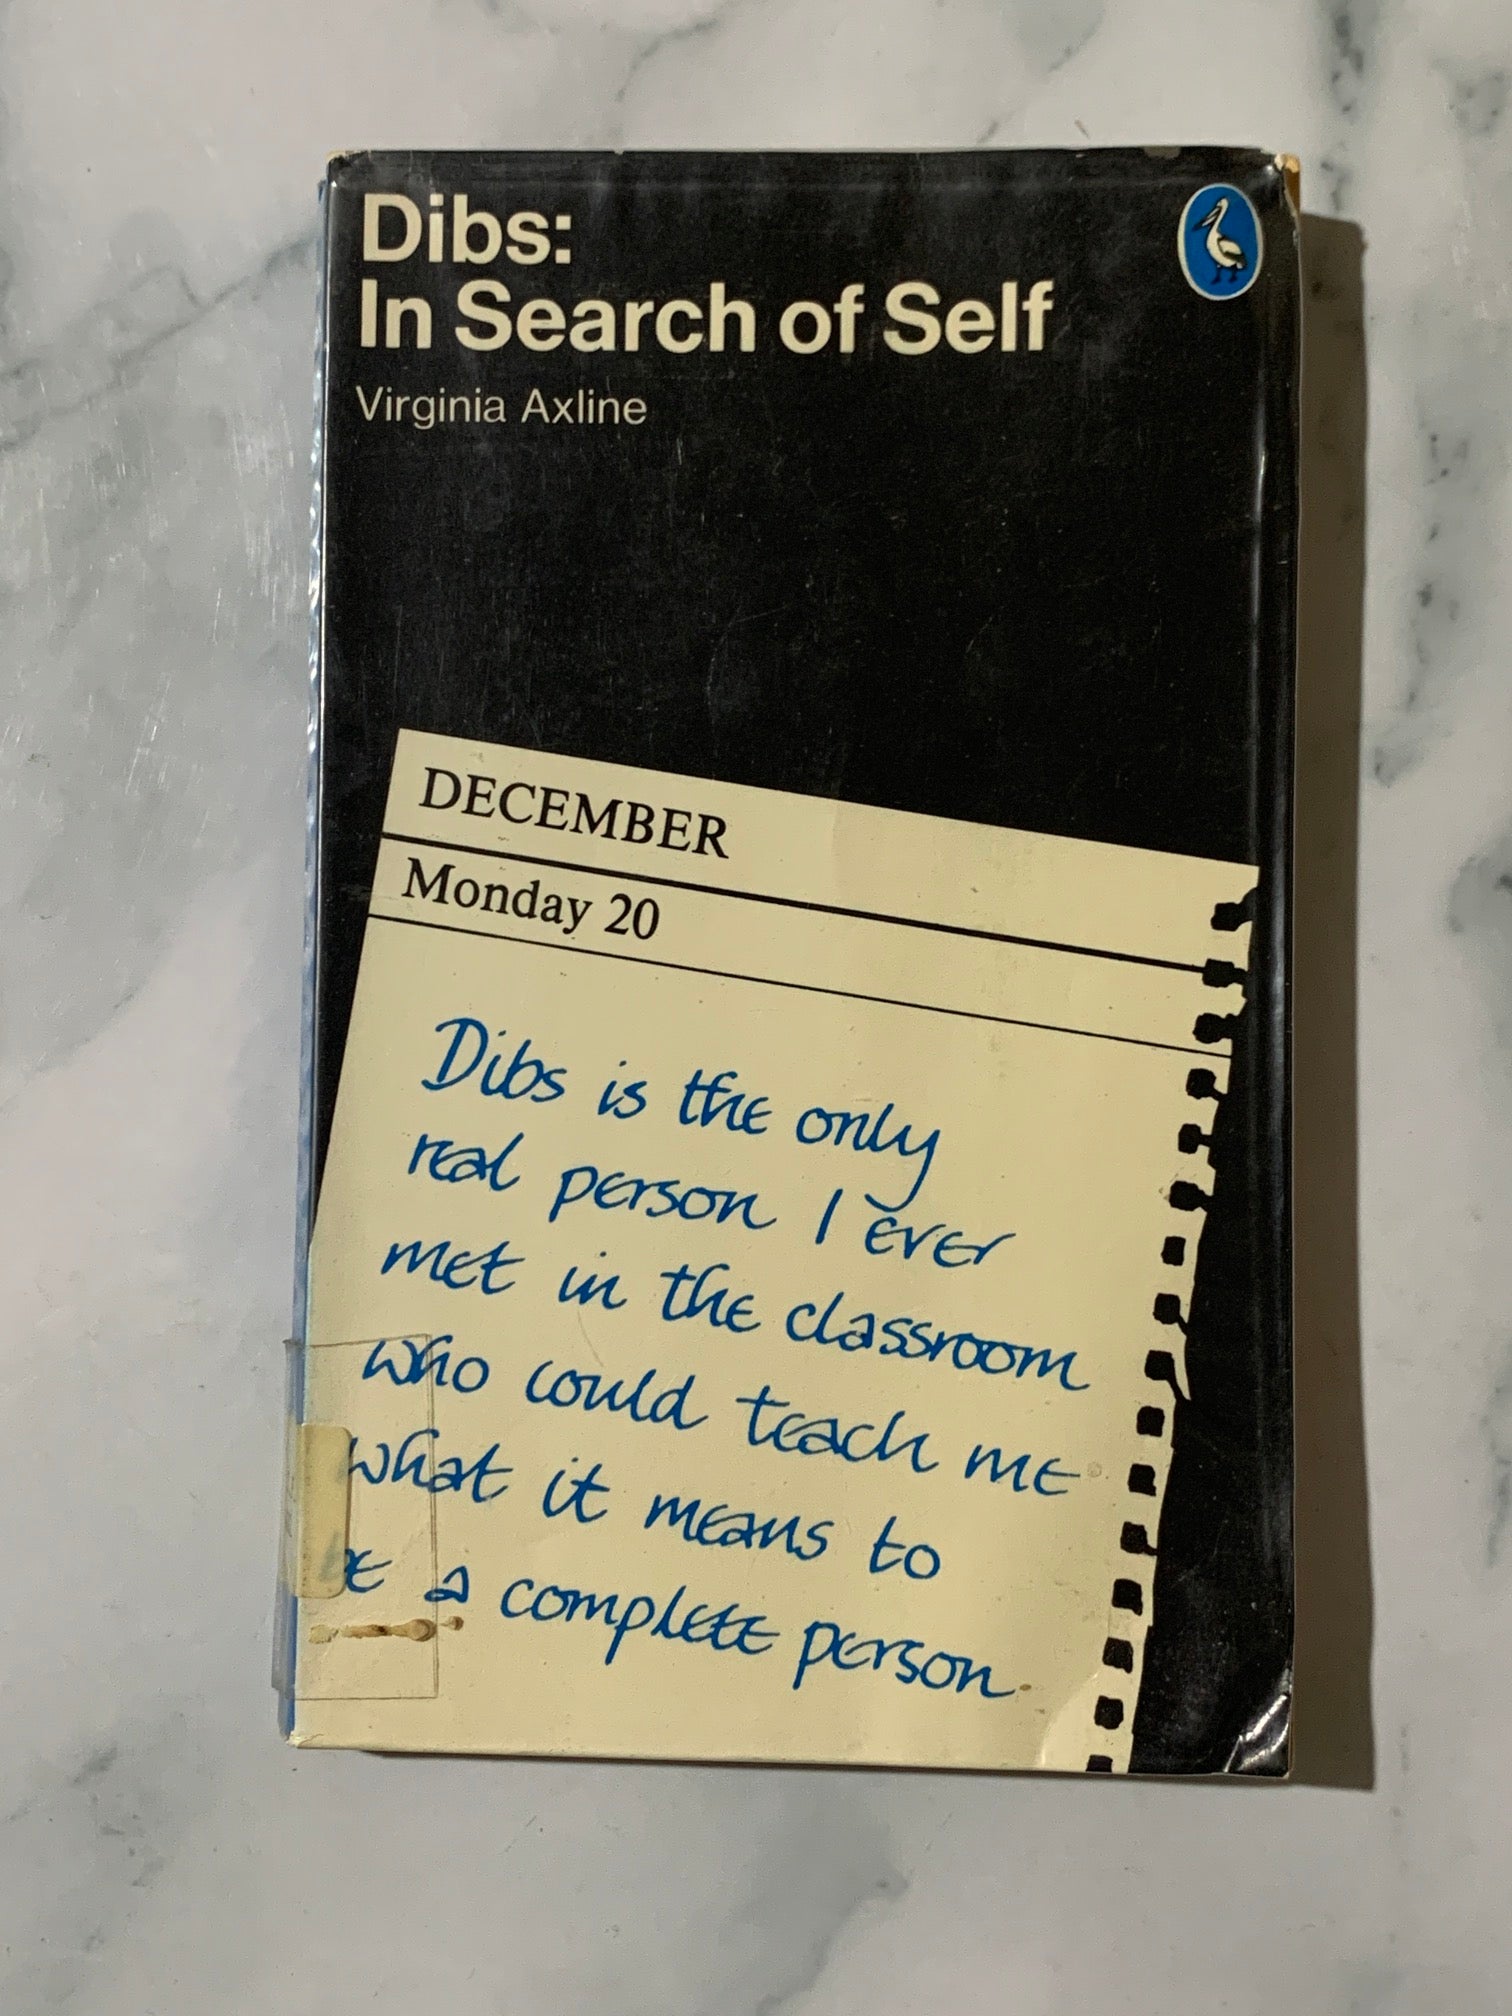 Dibs:
In Search of Self
Virginia Axline
DECEMBER
Monday 20
Dibs is the only
real person I ever
met in the classroom
who could teach me
what it means to
be a complete person.